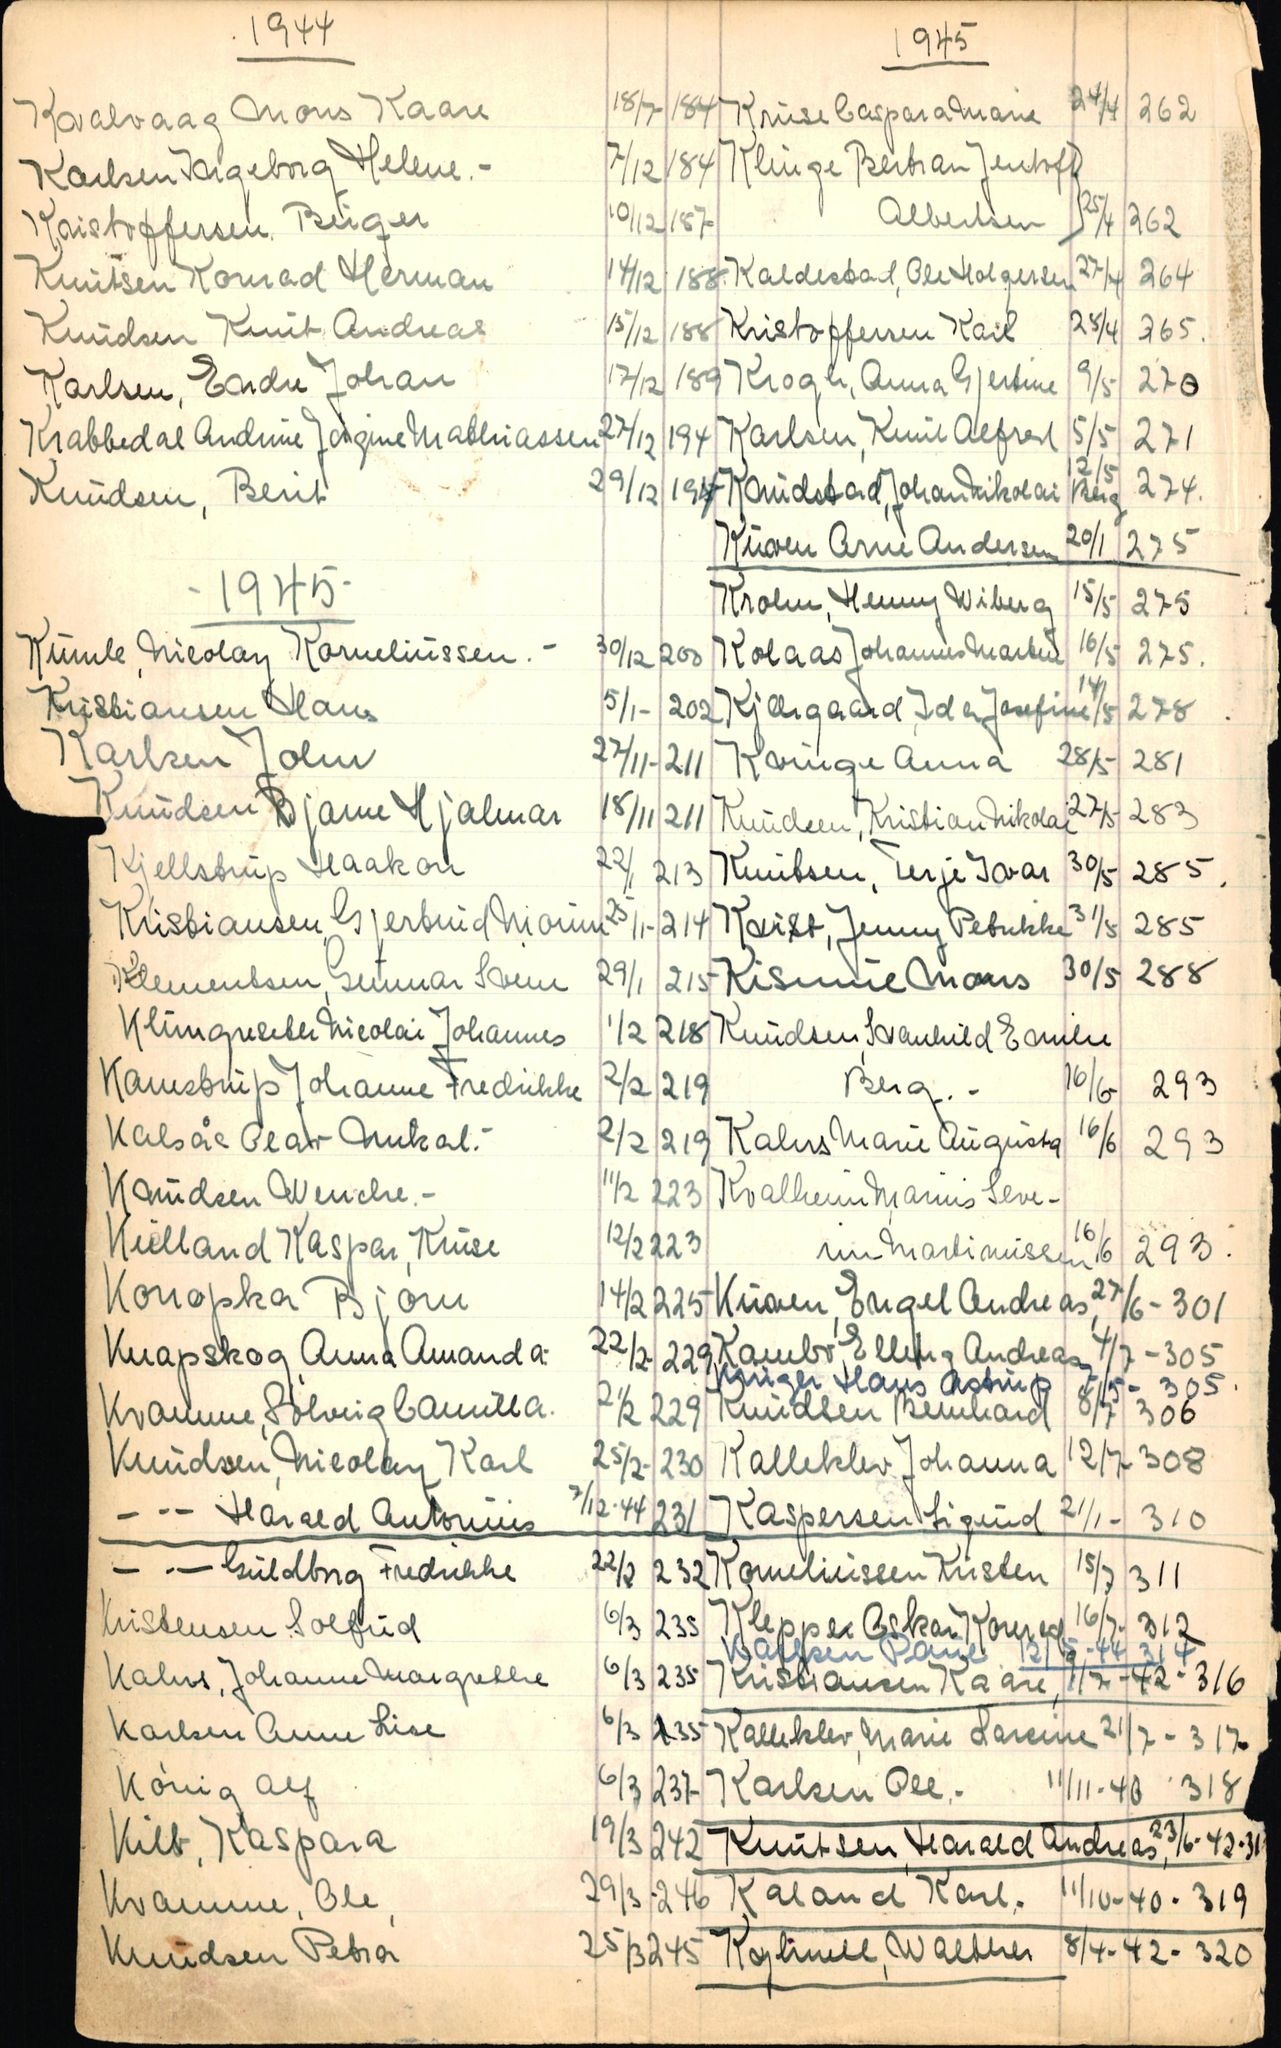 1944
Kvalvaag Mons Kaare 18/7 184
Karlsen Ingeborg Helene.- 7/12 184
Kristoffersen Birger 10/12 187
Knutsen Konrad Herman 14/12 188
Knudsen Knut Andreas 15/12 188
Karlsen, Endre Johan 17/12 189
Krabbedal Andrine Jørgine Mathiassen 27/12 194
Knudsen, Berit 29/12 194
- 1945 -
Kumle, Nicolay Korneliussen.- 30/12 200
Kristiansen Hans 5/1- 202
Karlsen John 27/11- 211
Knudsen Bjarne Hjalmar 18/11 211
Kjellstrup Haakon 22/1 213
Kristiansen, Gjertrud 25/1- 214
Klementsen, Gunnar Svein 29/1 215
Klungreseter Nicolai Johannes 1/2 218
Kamstrup Johanne Fredrikke 2/2 219
Kalsås Olav 2/2 219
Knudsen Wenche.- 11/2 223
Kielland Kaspar, Kruse 12/2 223
Konopka Bjørn 14/2 225
Knapskog, Anna Amanda 22/2- 229
Kvamme, Solveig Camilla. 21/2 229
Knudsen, Nicolay Karl 25/2- 230
- -- Harald Antonius 7/12-44 231
- -- Guldborg Fredrikke 22/2 232
Kristensen Solfrid 6/3 235
Kahrs, Johanne Margrethe 6/3 235
Karlsen Anne Lise 6/3 235
König Alf 6/3 237-
Kilt, Kaspara 19/3 242
Kvamme, Ole, 29/3-246
Knudsen Petra 25/3 245
1945
Kruse Caspara Marie 24/4 262
Klinge Bertran Jentoft
Albertsen 25/4 262
Kaldestad, Ole Holgersen 27/4 264
Kristoffersen Kail 28/4 265.
Krogh, Anna Gjertine 9/5 270
Karlsen, Knut Alfred 5/5 271
Knudstad, Johan Nikolai Berg 12/5 274.
Kuven Arne Andersen 20/1 275
Krohn, Henny Wiberg 15/5 275
Kolaas Johannes Martin 16/5 275.
Kjærgaard, Ida Josefine 14/5 278.
Kvinge Anna 28/5- 281
Knudsen, Kristian Nikolai 27/5 283
Knutsen, Terje Ivar 30/5 285.
Kvist, Jenny Petrikke 31/5 285
Kismule Mons 30/5 288
Knudsen, Svanhild Emilie
Berg.- 16/6 293
Kahrs Marie Augusta 16/6 293
Kvalheim Marius Seve-
rin Martinussen 16/6 293.
Kuven, Engel Andreas, 27/6-301
Kambo, Elling Andreas, 4/7-305
Krüger Hans Astrup 7/5- 305.
Knudsen Bernhard 8/7 306
Kalleklev Johanna 12/7-308
Kaspersen Sigurd 21/1- 310
Korneliussen Kristen 15/7 311
Klepper Oskar Konrad 16/7- 312
Karlsen 12/5-44 314
Kristiansen Kaare, 9/7-42-316
Kalleklev, Marie Larsine 21/7-317-
Karlsen Ole.- 11/11-40 318
Knutsen, Harald Andreas, 23/6-42-31
Kaland Karl. 11/10-40-319
Walther 8/4-42-320